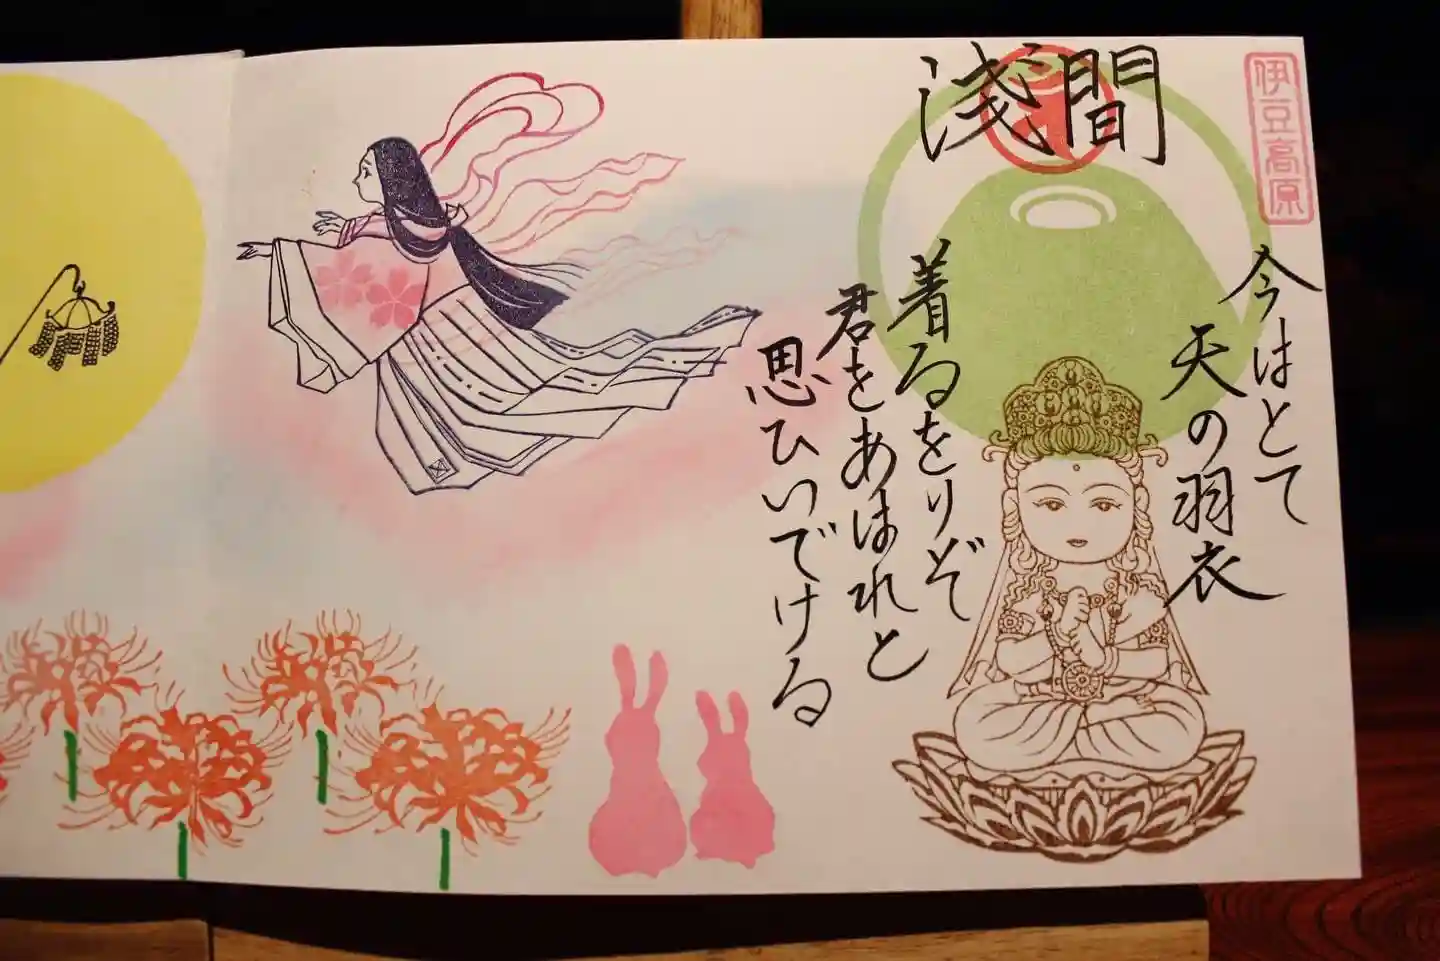 伊豆高原
浅間
今はとて
天の羽衣
着るをりぞ
君をあはれと
思ひいでける